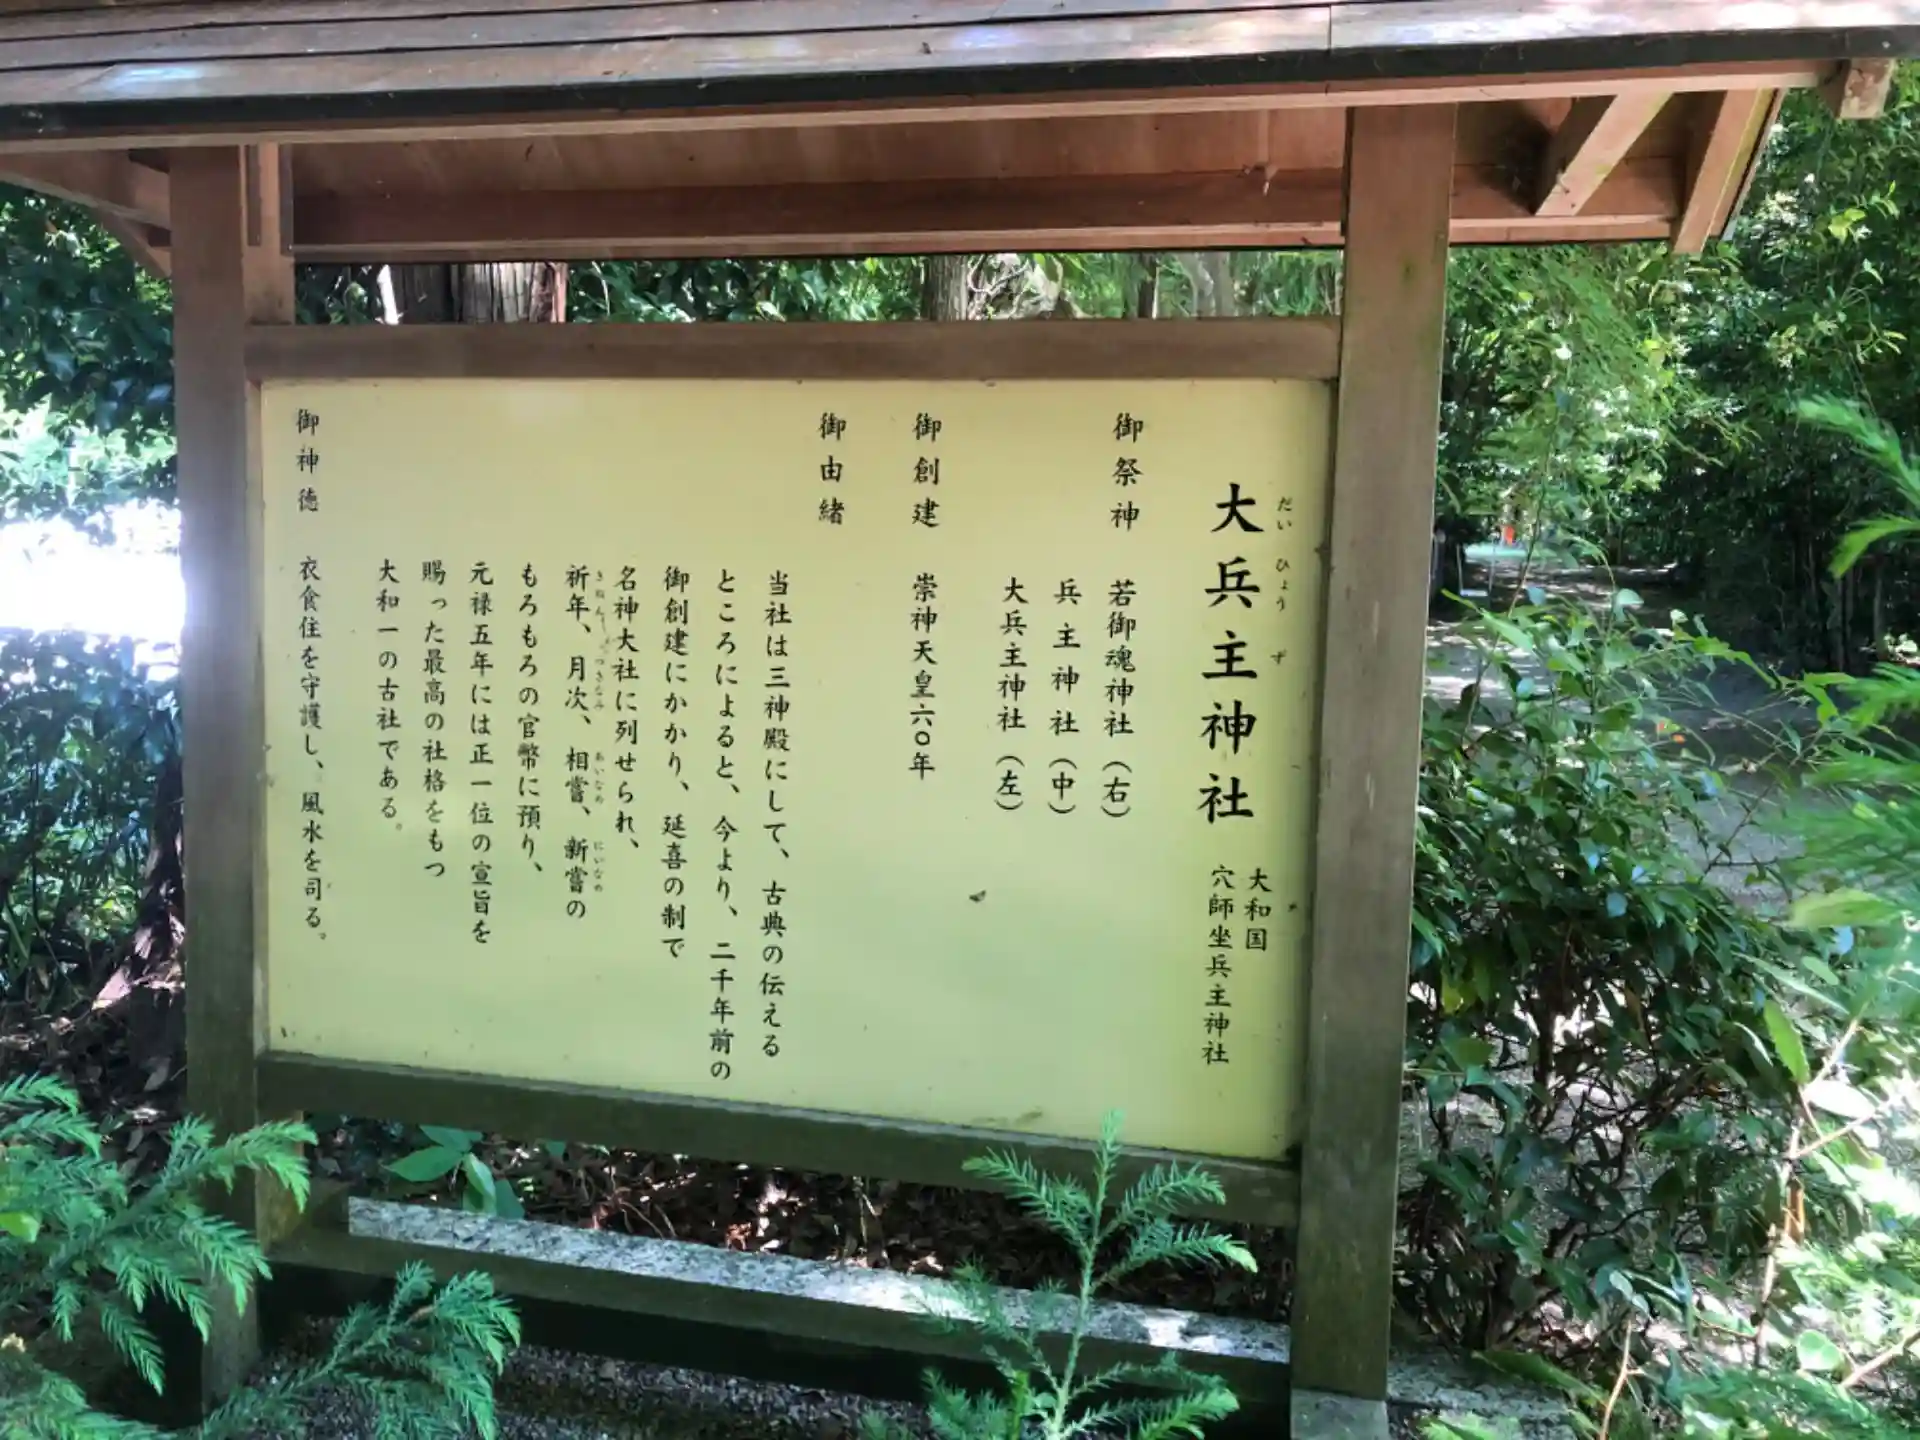 大兵主神社
だいひょうず
大和国
穴師坐兵主神社
御祭神 若御魂神社(右)
兵主神社(中)
大兵主神社(左)
御創建 崇神天皇六〇年
御由緒
当社は三神殿にして、古典の伝える
ところによると、今より、二千年前の
御創建にかかり、延喜の制で
名神大社に列せられ、
祈年、月次、相嘗、新嘗の
きねん つきなみ あいなめ にいなめ
もろもろの官幣に預り、
元禄五年には正一位の宣旨を
賜った最高の社格をもつ
大和一の古社である。
御神徳 衣食住を守護し、風水を司る。